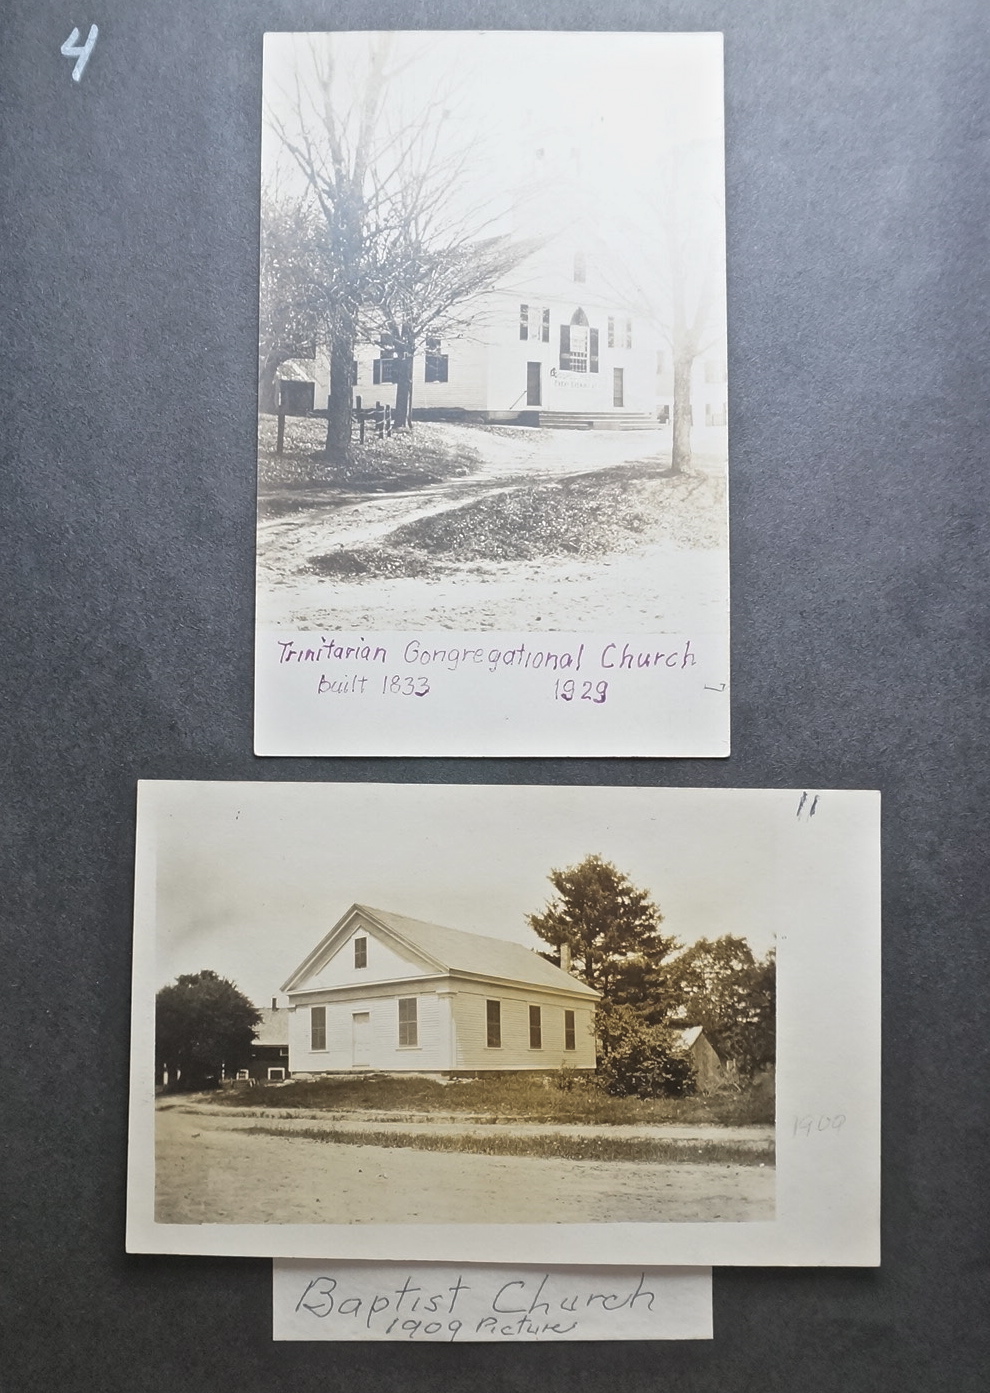 4
Trinitarian Congregational Church
built 1833 1929
11
1909
Baptist Church
1909 Picture